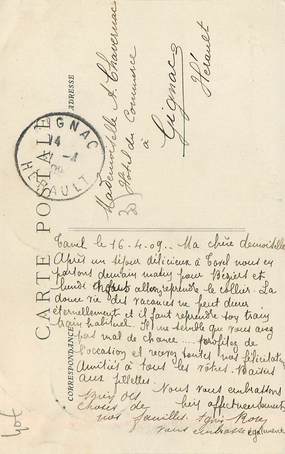 CARTE POSTALE
ADRESSE
CORRESPONDANCE
Mademoiselle A. Chavernac
Hôtel du Commerce
à
Gignac
Hérault
GIGNAC
HÉRAULT
Tavel le 16-4-09. Ma chère demoiselle
Après un séjour délicieux à Tavel nous en
partons demain matin pour Béziers et
lundi nous allons reprendre le collier. La
douce vie des vacances ne peut durer
éternellement et il faut reprendre son train
train habituel. Il me semble que vous avez
pas mal de chance profitez de
l'occasion et recevez toutes nos félicitations
Amitiés à tous les vôtres. Baisers
aux fillettes. Nous vous embrassons
bien affectueusement
choses de
nos familles.
vous embrasse également